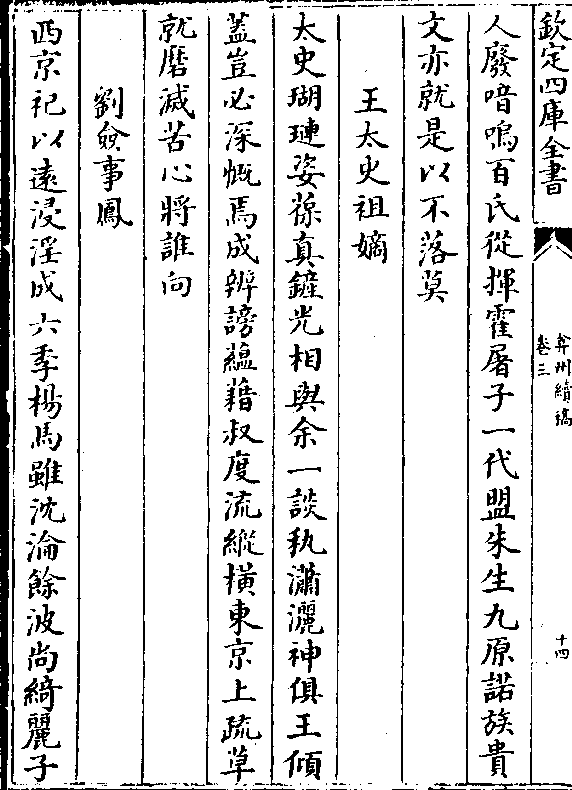 欽定四庫全書
弇州續稿
卷三
十四
人廢喑嗚百氏從揮霍屠子一代盟朱生九原諾族貴
文亦就是以不落莫
王太史祖嫡
太史瑚璉姿葆真鏟光相與余一談執瀟灑神俱王傾
蓋豈必深慨焉成辨謗蘊藉叔度流縱橫東京上疏草
就磨滅苦心將誰向
劉僉事鳳
西京祀以遠浸淫成六季楊馬雖沈淪餘波尚綺麗子